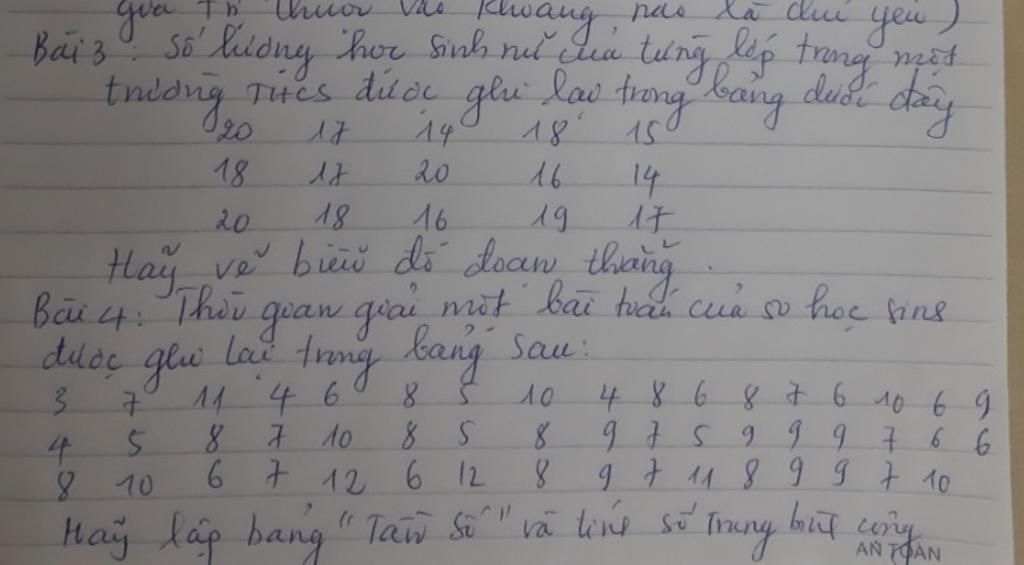 giá trị thuộc vào khoảng nào là chủ yếu)
Bài 3: Số lượng học sinh nữ của từng lớp trong một
trường THCS được ghi lại trong bảng dưới đây
20 17 14 18 15
18 17 20 16 14
20 18 16 19 17
Hãy vẽ biểu đồ đoạn thẳng.
Bài 4: Thời gian giải một bài toán của 50 học sins
được ghi lại trong bảng sau:
3 7 11 4 6 8 5 10 4 8 6 8 7 6 10 6 9
4 5 8 7 10 8 5 8 9 7 5 9 9 9 7 6 6
8 10 6 7 12 6 12 8 9 7 11 8 9 9 7 10
Hãy lập bảng "Tần số" và tính số trung bình cộng
AN TOÀN